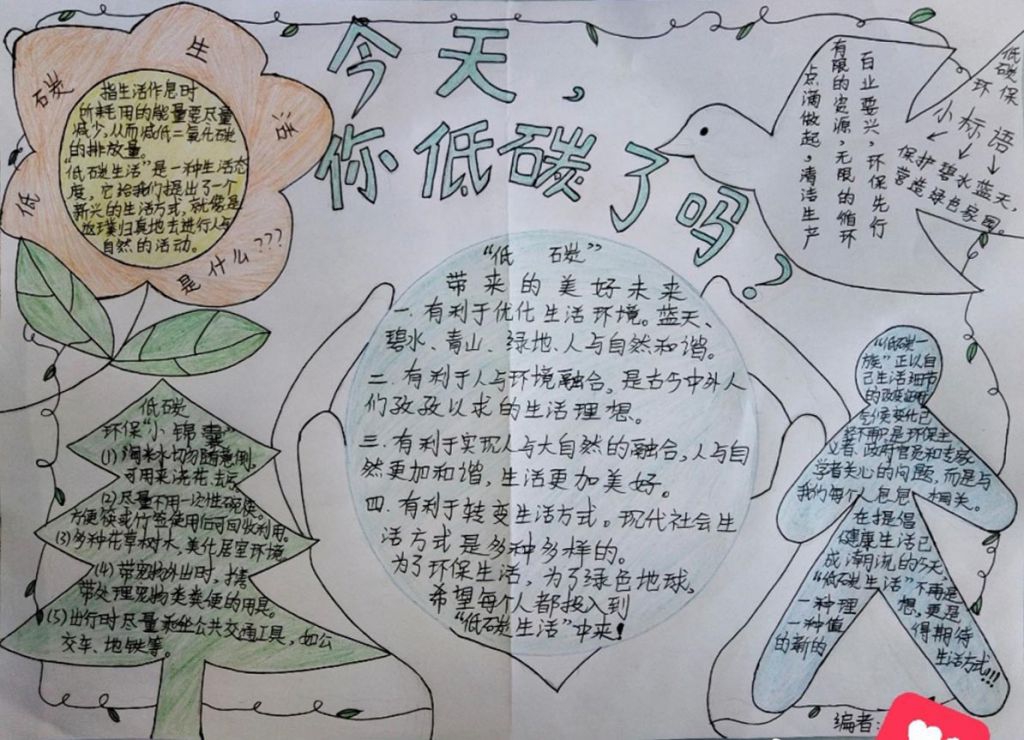 今天，
你低碳了吗？
低碳生活
是什么???
指生活作息时
所耗用的能量要尽量
减少,从而减低二氧化碳
的排放量。
"低碳生活"是一种生活态
度,它给我们提出了一个
新兴的生活方式,就像是
返璞归真地去进行人与
自然的活动。
百业要兴,环保先行
有限的资源,无限的循环
点滴做起,清洁生产
低碳
环保
小标语
保护碧水蓝天,
营造绿色家园。
"低 碳"
带来的美好未来
一.有利于优化生活环境。蓝天、
碧水、青山、绿地、人与自然和谐。
二.有利于人与环境融合,是古今中外人
们孜孜以求的生活理想。
三.有利于实现人与大自然的融合,人与自
然更加和谐,生活更加美好。
四.有利于转变生活方式。现代社会生
活方式是多种多样的。
为了环保生活,为了绿色地球,
希望每个人都投入到
"低碳生活"中来!
低碳
环保"小锦囊"
(1)淘米水切勿随意倒,
可用来浇花、去污
(2)尽量不用一次性碗筷。
方便筷或竹签使用后可回收利用。
(3)多种花草树木,美化居室环境
(4)带宠物外出时,携
带处理宠物类粪便的用具。
(5)出行时尽量乘坐公共交通工具,如公
交车、地铁等。
"低碳一
族"正以自
己生活细节
的改变证明:
气候变化已
经不再只是环保主
义者、政府官员和专家
学者关心的问题,而是与
我们每个人息息相关。
在提倡
健康生活已
成潮流的今天,
"低碳生活"不再是
一种理想,更是
一种值得期待
的新的生活方式!!!
编者: